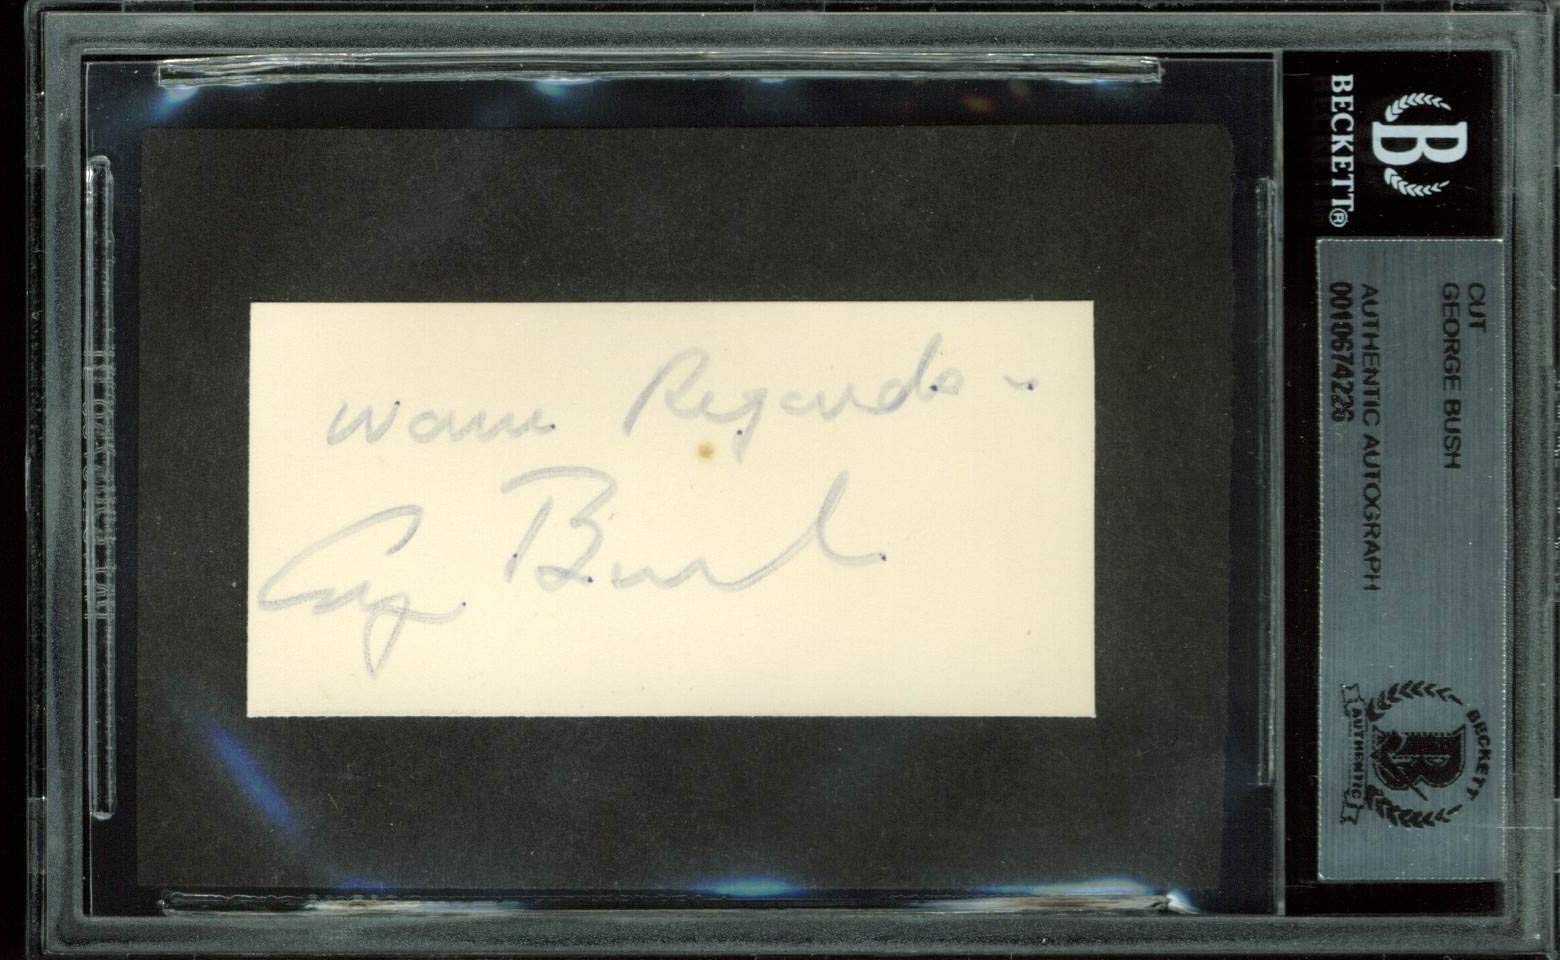 Warm Regards -
George Bush
BECKETT®
B
CUT
GEORGE BUSH
AUTHENTIC AUTOGRAPH
0010674226
BECKETT
B
AUTHENTIC